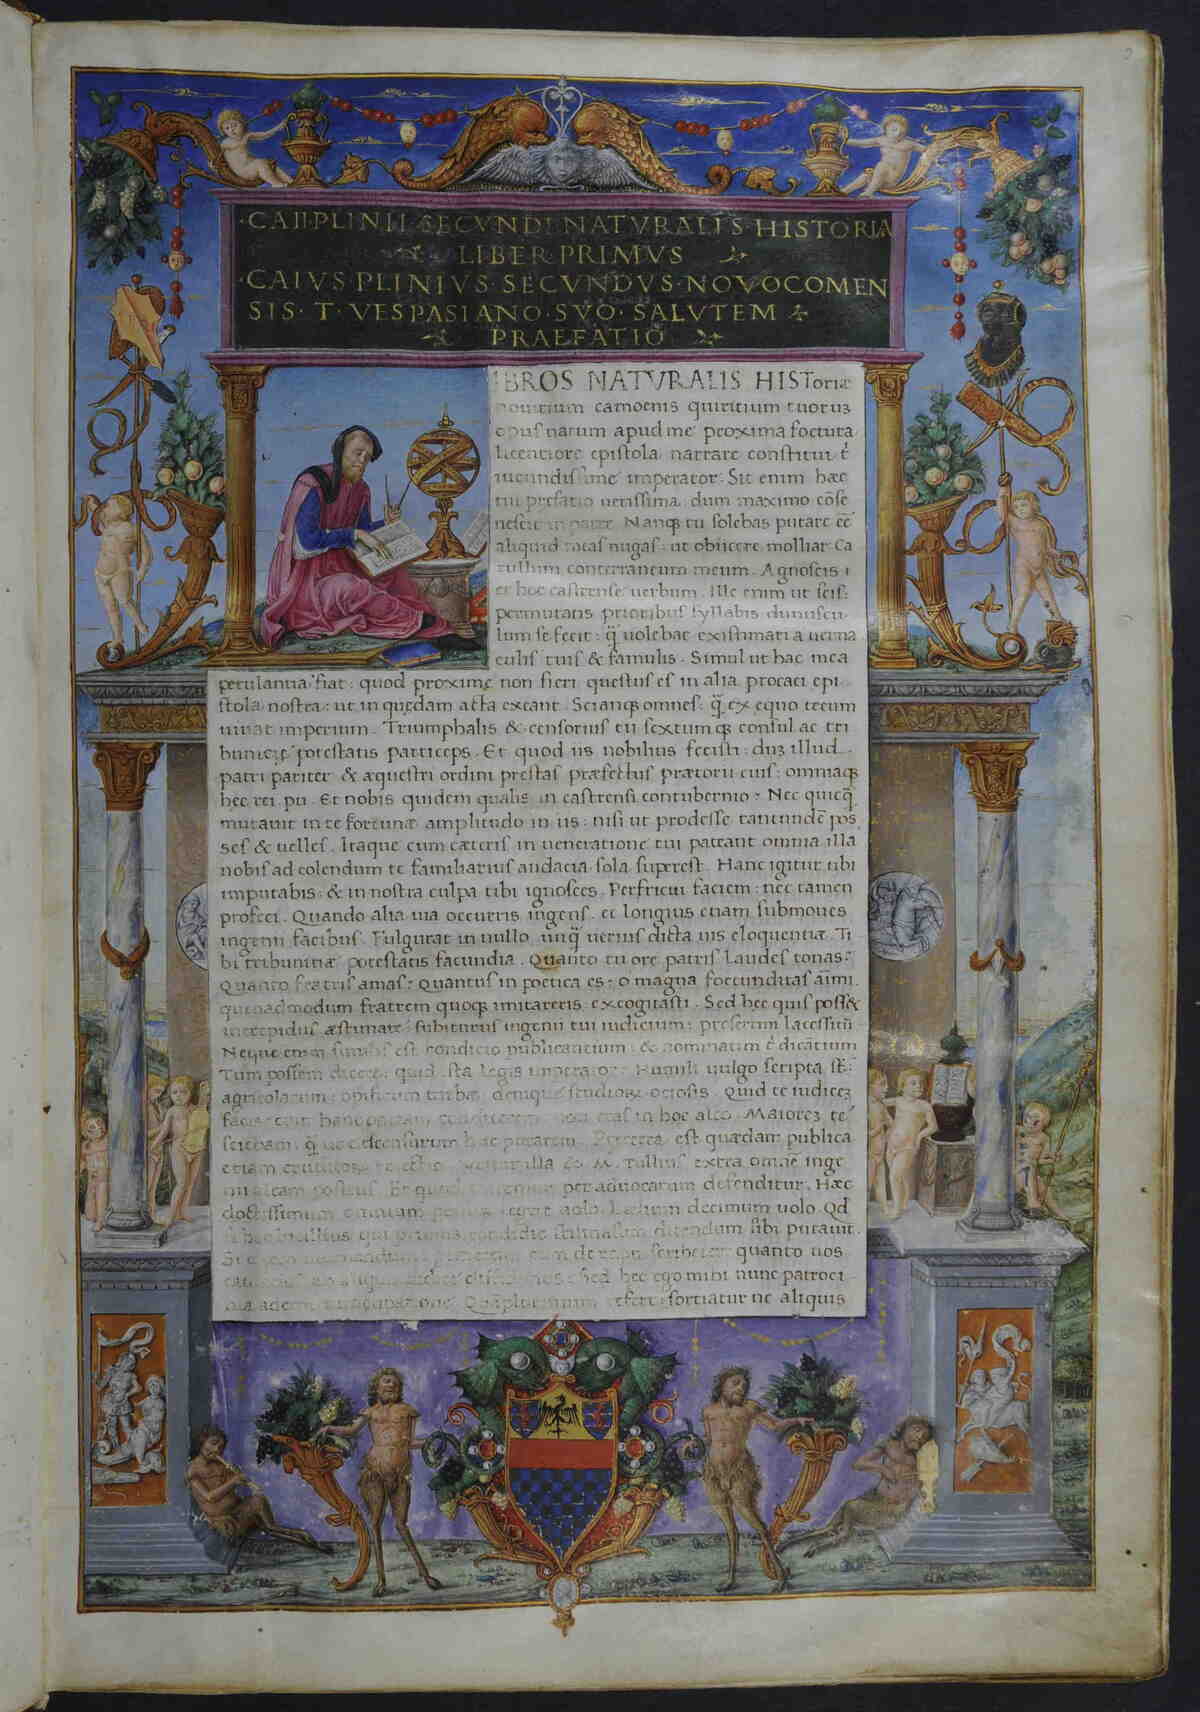 ·CAII·PLINII·SECVNDI·NATVRALIS·HISTORIA
LIBER·PRIMVS
·CAIVS·PLINIVS·SECVNDVS·NOVOCOMEN
SIS·T·VESPASIANO·SVO·SALVTEM
PRAEFATIO
IBROS NATVRALIS HISToriæ
nouitium camoenis quiritium tuoruʒ
opus natum apud me proxima foetura
licentiore epistola narrare constitui tͥ
iucundissime imperator. Sit enim hæc
tui prefatio uerissima, dum maximo cōse
nescit in patre. Nanqꝫ tu solebas putare eē
aliquid meas nugas: ut obiicere molliar Ca
tullum conterraneum meum. Agnoscis
et hoc castrense uerbum. Ille enim ut scis:
permutatis prioribus syllabis duriuscu
lum se fecit: q̃ uolebat existimari a uerna
culis tuis & famulis. Simul ut hac mea
petulantia fiat: quod proxime non fieri questus es in alia procaci epi
stola nostra: ut in quędam acta exeant. Scianqꝫ omnes: q̃ ex equo tecum
uiuat imperium. Triumphalis & censorius tu sextumqꝫ consul ac tri
bunicię potestatis particeps. Et quod iis nobilius fecisti: duʒ illud
patri pariter & æquestri ordini prestas præfectus prætorii eius: omniaqꝫ
hec rei pu. Et nobis quidem qualis in castrensi contubernio? Nec quicq̃
mutauit in te fortunæ amplitudo in iis: nisi ut prodesse tantundē pos
ses & uelles. Itaque cum cæteris in ueneratione tui pateant omnia illa
nobis ad colendum te familiarius audacia sola superest. Hanc igitur tibi
imputabis: & in nostra culpa tibi ignosces. Perfricui faciem: nec tamen
profeci. Quando alia uia occurris ingens. et longius etiam submoues
ingenii facibus. Fulgurat in nullo unq̃ uerius dicta uis eloquentiæ. Ti
bi tribunitiæ potestatis facundia. Quanto tu ore patris laudes tonas?
Quanto fratris amas? Quantus in poetica es? o magna foecunditas aīmi.
quemadmodum fratrem quoqꝫ imitareris excogitasti. Sed hec quis poss&
intrepidus æstimare? subiturus ingenii tui iudicium: presertim lacessitū
Neque enim similis est condicio publicantium: & nominatim tͥ dicātium
Tum possem dicere: quid ista legis imperator? Humili uulgo scripta st̄:
agricolarum: opificum turbæ denique studioꝝ ociosis. Quid te iudiceʒ
facis? cum hanc operam condicerem: non eras in hoc albo. Maioreʒ te
sciebam: q̃ ut descensurum huc putarem. Preterea est quædam publica
etiam eruditoꝝ reiectio. Utitur illa & M. Tullius extra omnē inge
nii aleam positus. Et quod miremur per aduocatum defenditur. Hæc
doctissimum omnium legere nolo. Lælium decimum uolo. Qd
si hoc Lucillius qui primus condidit stili nasum dicendum sibi putauit.
quanto nos
hec ego mihi nunc patroci
nia ademi nuncupatione. Quāplurimum refert: sortiatur ne aliquis